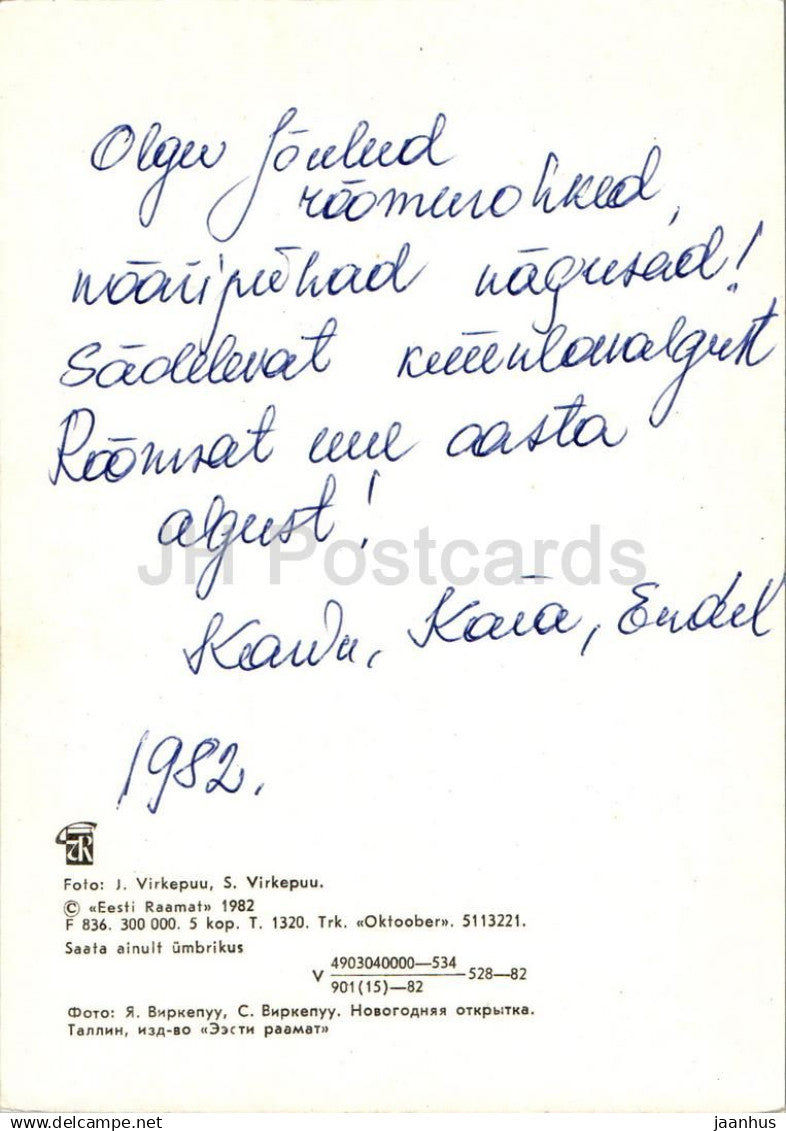 Olgu jõulud
rõõmurohked,
nääripühad nägusad!
Sädelevat küünlavalgust
Rõõmsat uue aasta
algust!
JH Postcards
Kaia, Endel
1982.
Foto: J. Virkepuu, S. Virkepuu.
© «Eesti Raamat» 1982
F 836. 300 000. 5 kop. T. 1320. Trk. «Oktoober». 5113221.
Saata ainult ümbrikus
V 4903040000—534 —528—82
901(15)—82
Фото: Я. Виркепуу, С. Виркепуу. Новогодняя открытка.
Таллин, изд-во «Ээсти раамат»
delcampe.net
jaanhus